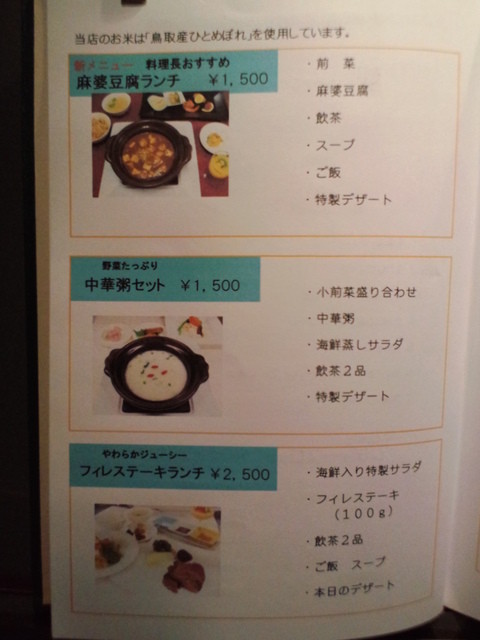 当店のお米は「鳥取産ひとめぼれ」を使用しています。
新メニュー 料理長おすすめ
麻婆豆腐ランチ ￥1,500
・前 菜
・麻婆豆腐
・飲茶
・スープ
・ご飯
・特製デザート
野菜たっぷり
中華粥セット ￥1,500
・小前菜盛り合わせ
・中華粥
・海鮮蒸しサラダ
・飲茶２品
・特製デザート
やわらかジューシー
フィレステーキランチ ￥2,500
・海鮮入り特製サラダ
・フィレステーキ
（１００ｇ）
・飲茶２品
・ご飯 スープ
・本日のデザート